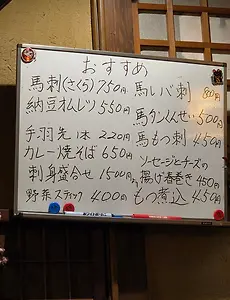 おすすめ
馬刺(さくら)750円
納豆オムレツ550円
手羽先1本220円
カレー焼そば650円
刺身盛合せ1500円より
野菜スティック400円
馬レバ刺800円
馬タンくんせい500円
馬もつ刺450円
ソーセージとチーズの
揚げ春巻き450円
もつ煮込450円